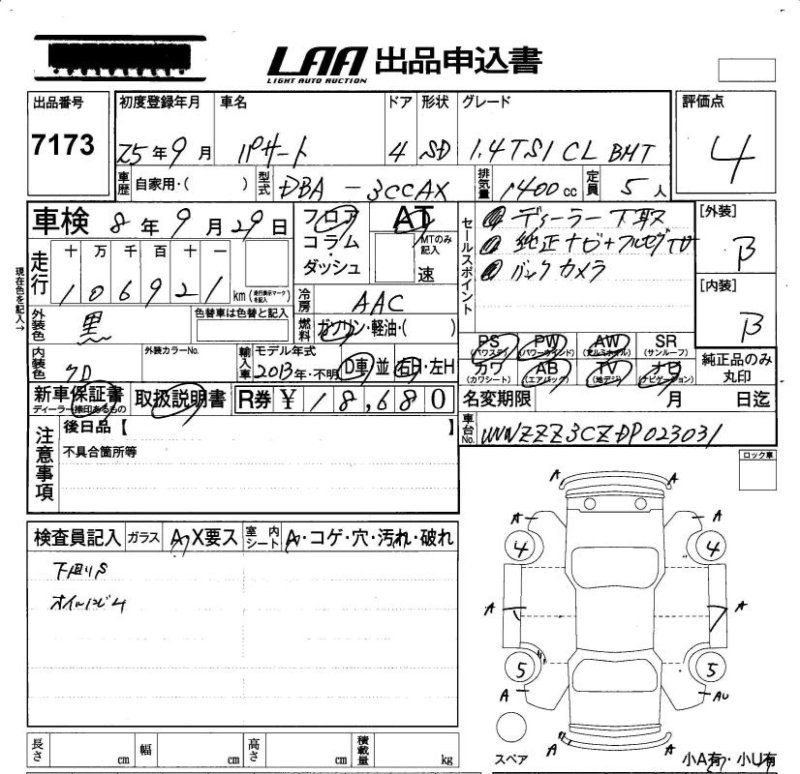 LAA 出品申込書
LIGHT AUTO AUCTION
出品番号 初度登録年月 車名 ドア 形状 グレード 評価点
7173 25年9月 VWパサート 4 SD 1.4TSI CL BMT 4
車歴 自家用・( ) 型式 DBA-3CCAX 排気量 1400cc 定員 5人
車検 8年9月29日 フロア コラム・ダッシュ AT MTのみ記入 速
セールスポイント
① ディーラー下取
② 純正ナビ+フルセグTV
③ バックカメラ
[外装] B
[内装] B
現在色を記入→
走行 十 万 千 百 十 一
106921 km (走行表示マークを記入)
冷房 AAC
外装色 黒 色替車は色替と記入
燃料 ガソリン・軽油・( )
PS (パワステ) PW (パワーウインド) AW (アルミホイル) SR (サンルーフ)
カワ (カワシート) AB (エアバッグ) TV (地デジ) ナビ (ナビゲーション)
純正品のみ丸印
内装色 外装カラーNo. 輸入車 モデル年式 2013年・不明 D車 並 右H・左H
新車保証書 ディーラー捺印あるもの 取扱説明書 R券 ¥18,680
名変期限 月 日迄
車台No. WVWZZZ3CZDP023031
注意事項 後日品【 】
不具合箇所等
ロック車
検査員記入 ガラス A・X要ス 室内シート A・コゲ・穴・汚れ・破れ
下廻りS
オイルにじみ
A A
A A
4 4
A A
5 5
A AU
A A
スペア
小A有・小U有
長さ cm 幅 cm 高さ cm 積載量 kg